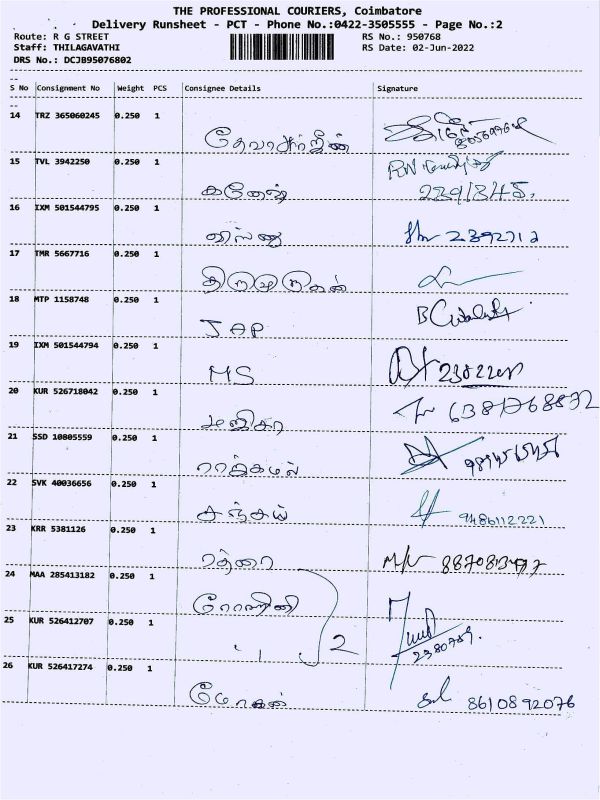 THE PROFESSIONAL COURIERS, Coimbatore
Delivery Runsheet - PCT - Phone No.:0422-3505555 - Page No.:2
Route: R G STREET RS No.: 950768
Staff: THILAGAVATHI RS Date: 02-Jun-2022
DRS No.: DCJB95076802
S No Consignment No Weight PCS Consignee Details Signature
14 TRZ 365060245 0.250 1
15 TVL 3942250 0.250 1
கணேஷ் 2391345.
16 IXM 501544795 0.250 1
விஸ்ணு 2392712
17 TMR 5667716 0.250 1
திருமுருகன்
18 MTP 1158748 0.250 1
JAP
19 IXM 501544794 0.250 1
MS
20 KUR 526718042 0.250 1
மளிகா 6381768872
21 SSD 10805559 0.250 1
ராஜ்கமல்
22 SVK 40036656 0.250 1
சஞ்சய் 9486112221
23 KRR 5381126 0.250 1
24 MAA 285413182 0.250 1
ரோஹினி
25 KUR 526412707 0.250 1
" 2 2380789.
26 KUR 526417274 0.250 1
மோகன் 8610892076